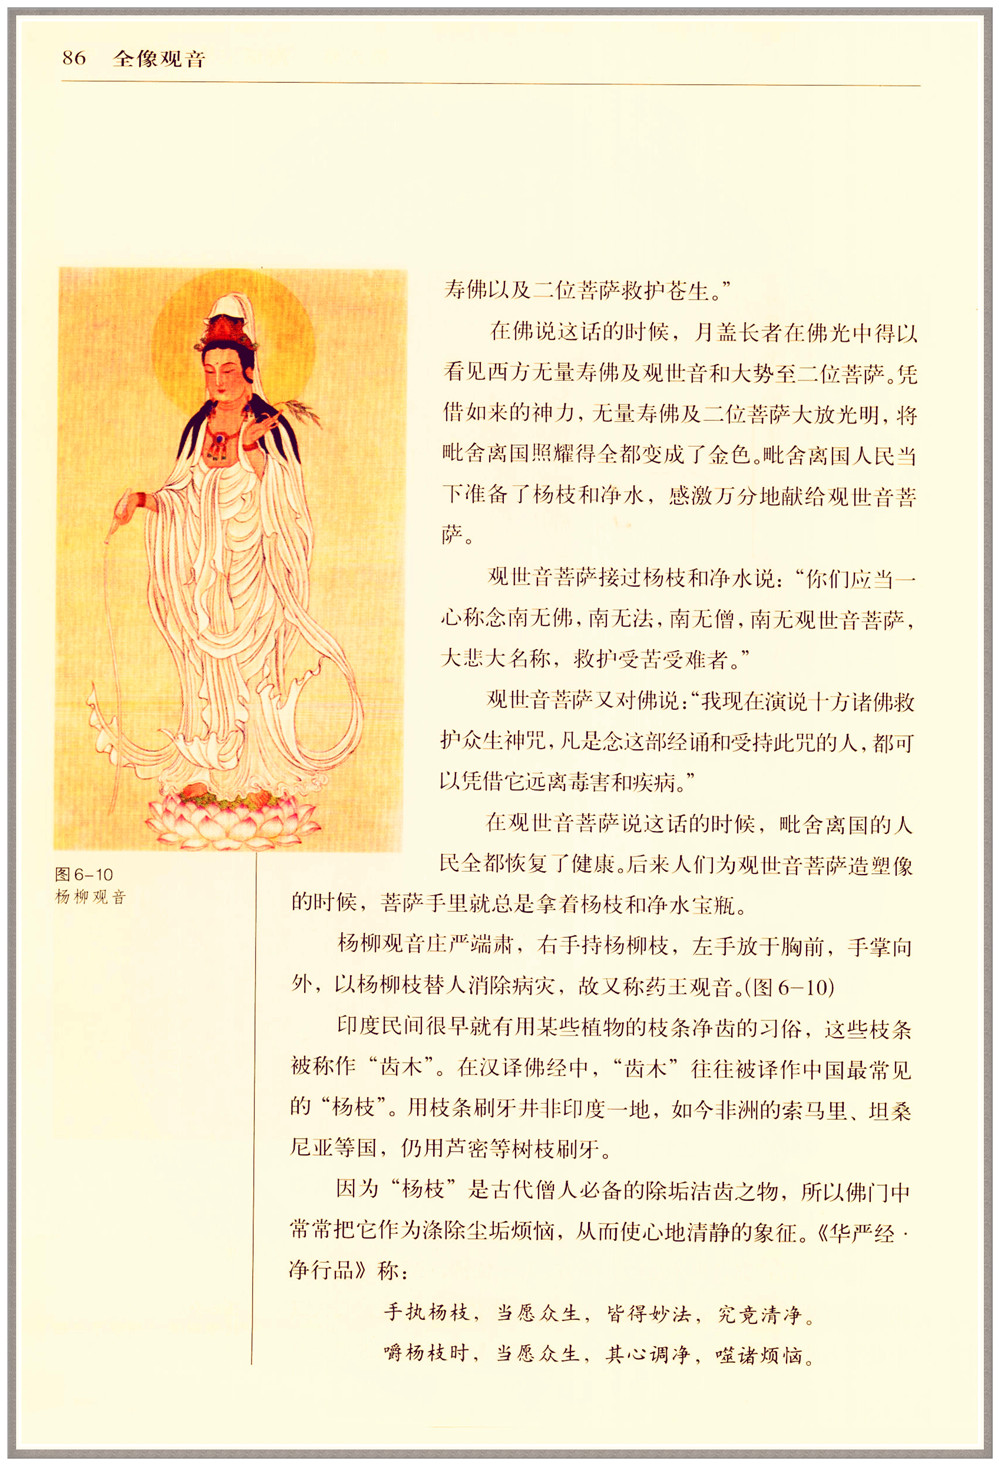 86 全像观音
寿佛以及二位菩萨救护苍生。”
在佛说这话的时候，月盖长者在佛光中得以
看见西方无量寿佛及观世音和大势至二位菩萨。凭
借如来的神力，无量寿佛及二位菩萨大放光明，将
毗舍离国照耀得全都变成了金色。毗舍离国人民当
下准备了杨枝和净水，感激万分地献给观世音菩
萨。
观世音菩萨接过杨枝和净水说：“你们应当一
心称念南无佛，南无法，南无僧，南无观世音菩萨，
大悲大名称，救护受苦受难者。”
观世音菩萨又对佛说：“我现在演说十方诸佛救
护众生神咒，凡是念这部经诵和受持此咒的人，都可
以凭借它远离毒害和疾病。”
在观世音菩萨说这话的时候，毗舍离国的人
民全都恢复了健康。后来人们为观世音菩萨造塑像
的时候，菩萨手里就总是拿着杨枝和净水宝瓶。
图6-10
杨柳观音
杨柳观音庄严端肃，右手持杨柳枝，左手放于胸前，手掌向
外，以杨柳枝替人消除病灾，故又称药王观音。(图6-10)
印度民间很早就有用某些植物的枝条净齿的习俗，这些枝条
被称作“齿木”。在汉译佛经中，“齿木”往往被译作中国最常见
的“杨枝”。用枝条刷牙并非印度一地，如今非洲的索马里、坦桑
尼亚等国，仍用芦密等树枝刷牙。
因为“杨枝”是古代僧人必备的除垢洁齿之物，所以佛门中
常常把它作为涤除尘垢烦恼，从而使心地清静的象征。《华严经·
净行品》称：
手执杨枝，当愿众生，皆得妙法，究竟清净。
嚼杨枝时，当愿众生，其心调净，噬诸烦恼。